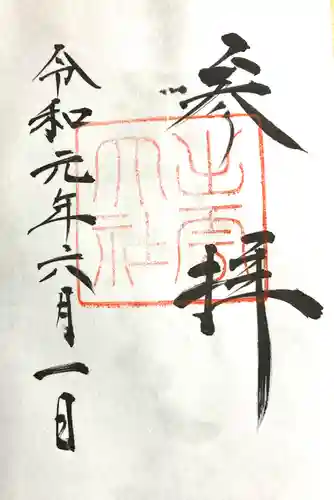 参拝
令和元年六月一日